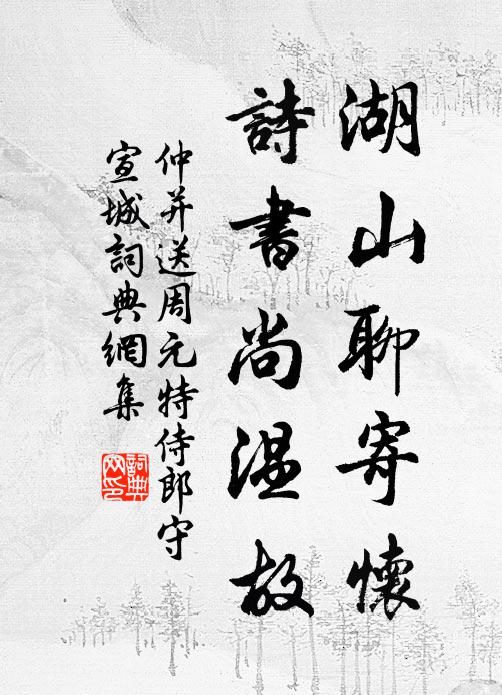 湖山聊寄懷
詩書尚温故
仲并送周元特侍郎守
宣城詞典網集
詞典网印